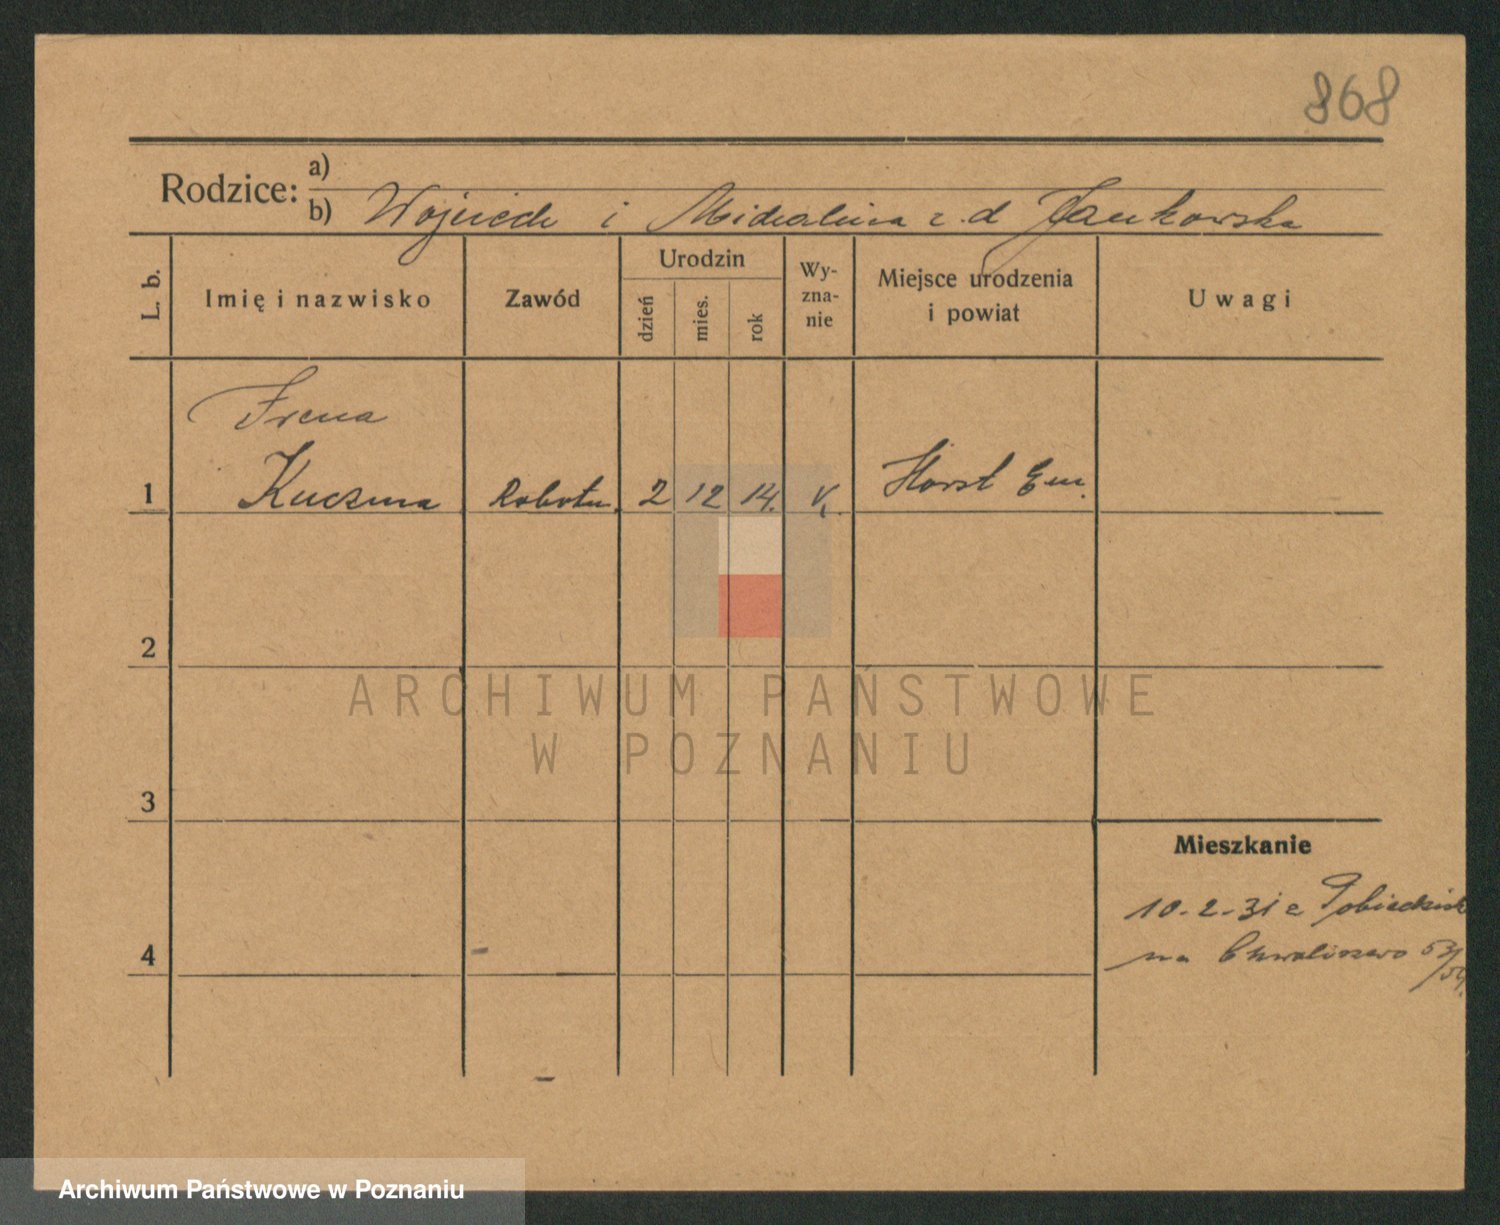 868
Rodzice:
a)
b) Wojciech i Michalina z. d Jankowska
L. b.
Imię i nazwisko
Zawód
Urodzin
dzień
mies.
rok
Wy-
zna-
nie
Miejsce urodzenia
i powiat
Uwagi
Irena
1 Kuczma Robotn. 2 12 14. K. Horst Em.
2
3
4
Mieszkanie
10-2-31 z Pobiedzisk
na Chwaliszewo 53/54.
ARCHIWUM PAŃSTWOWE
W POZNANIU
Archiwum Państwowe w Poznaniu